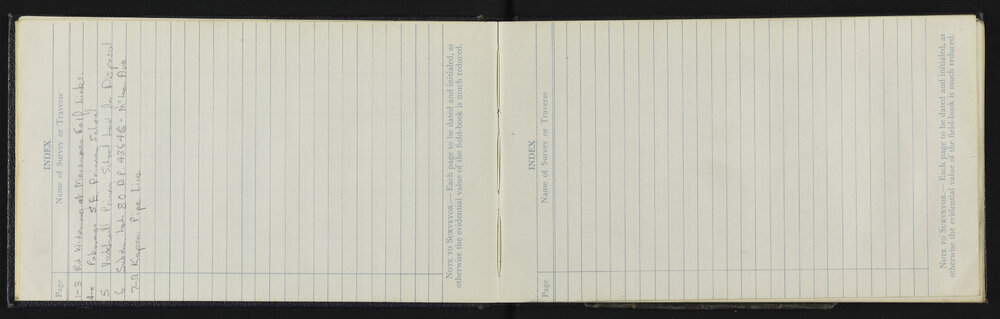 INDEX
Page Name of Survey or Traverse
1-3 Rd Widening at Manawaroa Golf Links.
Pokuranga S.E. Primary School
5 Primary School land for Disposal
6 Subdn Lot 80 DP 43646 - Ave
7-9 Kapuni Pipe Line
NOTE TO SURVEYOR.— Each page to be dated and initialed, as
otherwise the evidential value of the field-book is much reduced.
INDEX
Page Name of Survey or Traverse
NOTE TO SURVEYOR.— Each page to be dated and initialed, as
otherwise the evidential value of the field-book is much reduced.